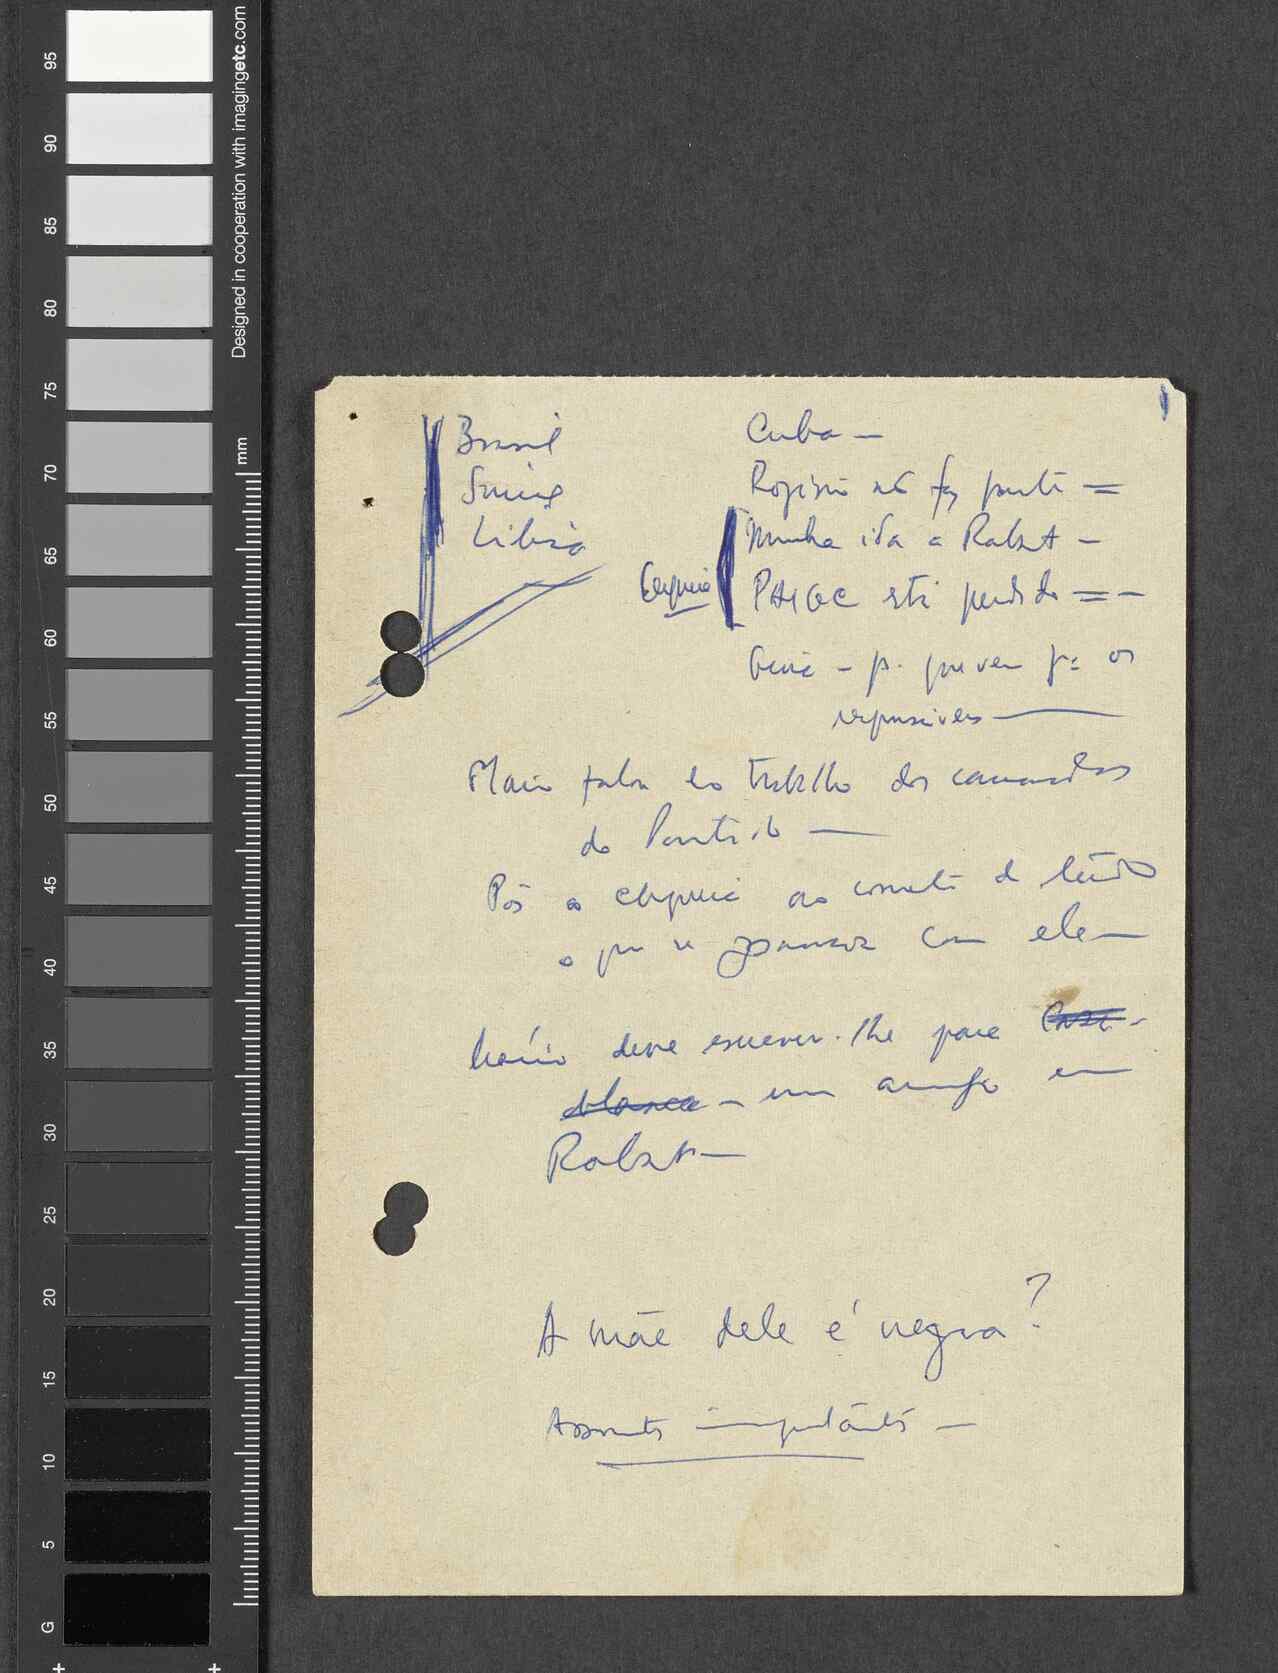 Designed in cooperation with imagingetc.com
mm
95
90
85
80
75
70
65
60
55
50
45
40
35
30
25
20
15
10
5
G
Brasil
Suíça
Líbia
Cuba —
não faz parte =
Minha ida a Rabat —
PAIGC está perdido = —
— p. que vem pª os
responsáveis —
Mário falou do trabalho dos camaradas
do Partido —
Pôs o ao corrente de tudo
o que se passava com ele —
Mário deve escrever-lhe para Casa-
blanca — um amigo em
Rabat —
A mãe dele é negra?
Assuntos importantes —